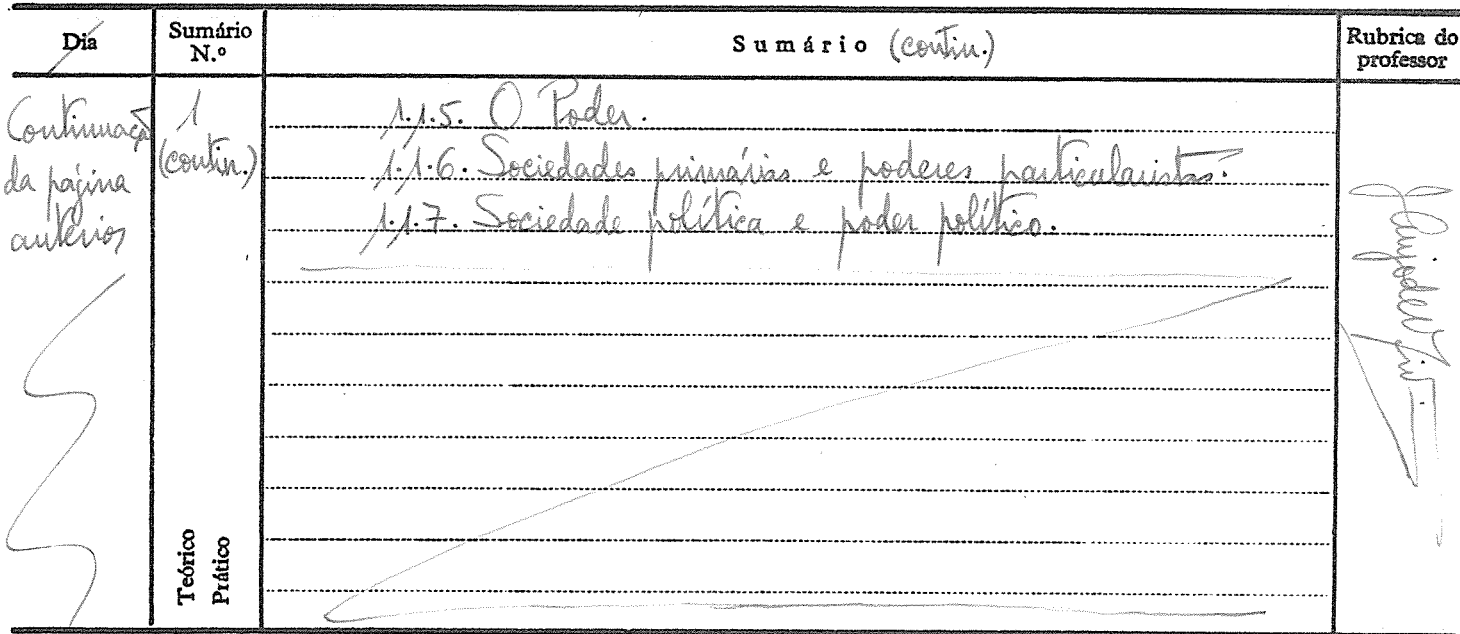 Dia
Sumário N.º
Sumário (contin.)
Rubrica do professor
Continuação
da página
anterior
1
(contin.)
1.1.5. O Poder.
1.1.6. Sociedades primárias e poderes particularistas.
1.1.7. Sociedade política e poder político.
Teórico
Prático